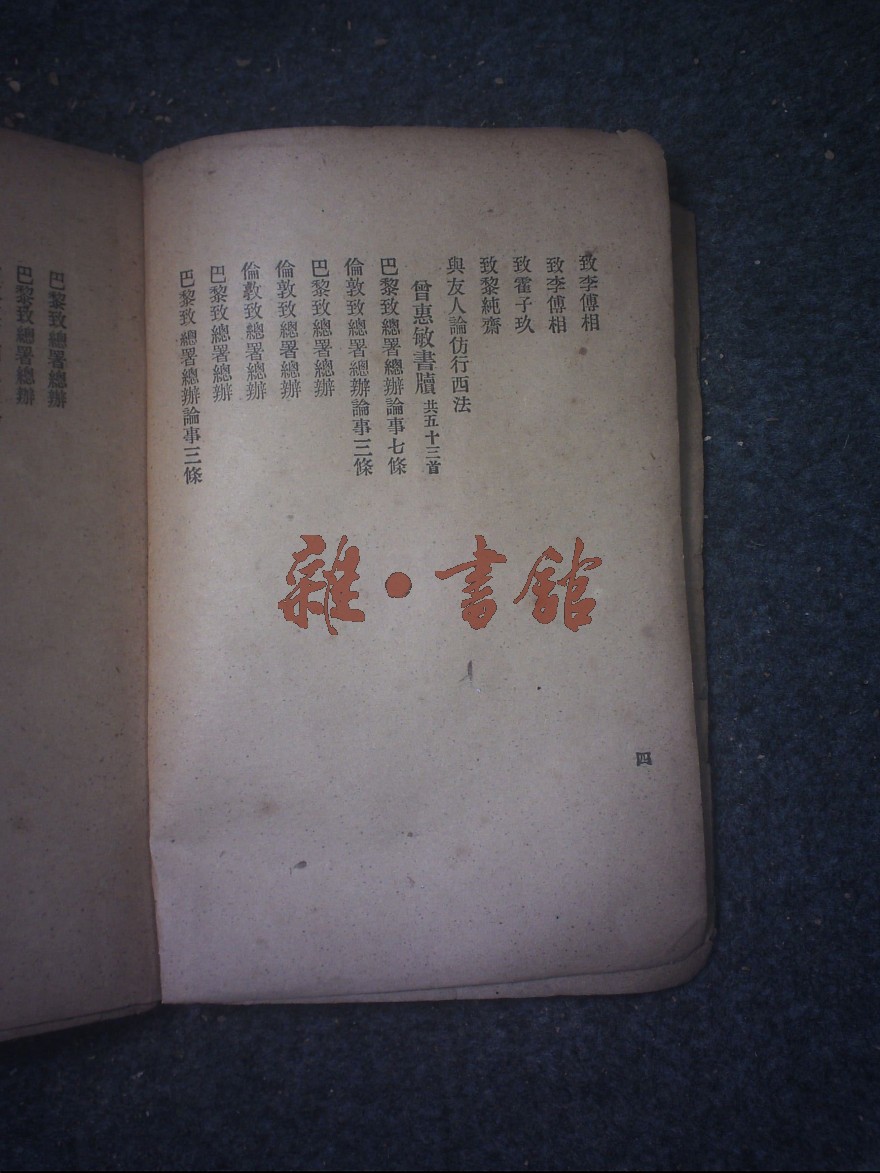 致李傅相
致李傅相
致霍子玖
致黎純齋
與友人論仿行西法
曾惠敏書牘 共五十三首
巴黎致總署總辦論事七條
倫敦致總署總辦論事三條
巴黎致總署總辦
倫敦致總署總辦
倫敦致總署總辦
巴黎致總署總辦
巴黎致總署總辦論事三條
四
巴黎致總署總辦
巴黎致總署總辦
雜·書館